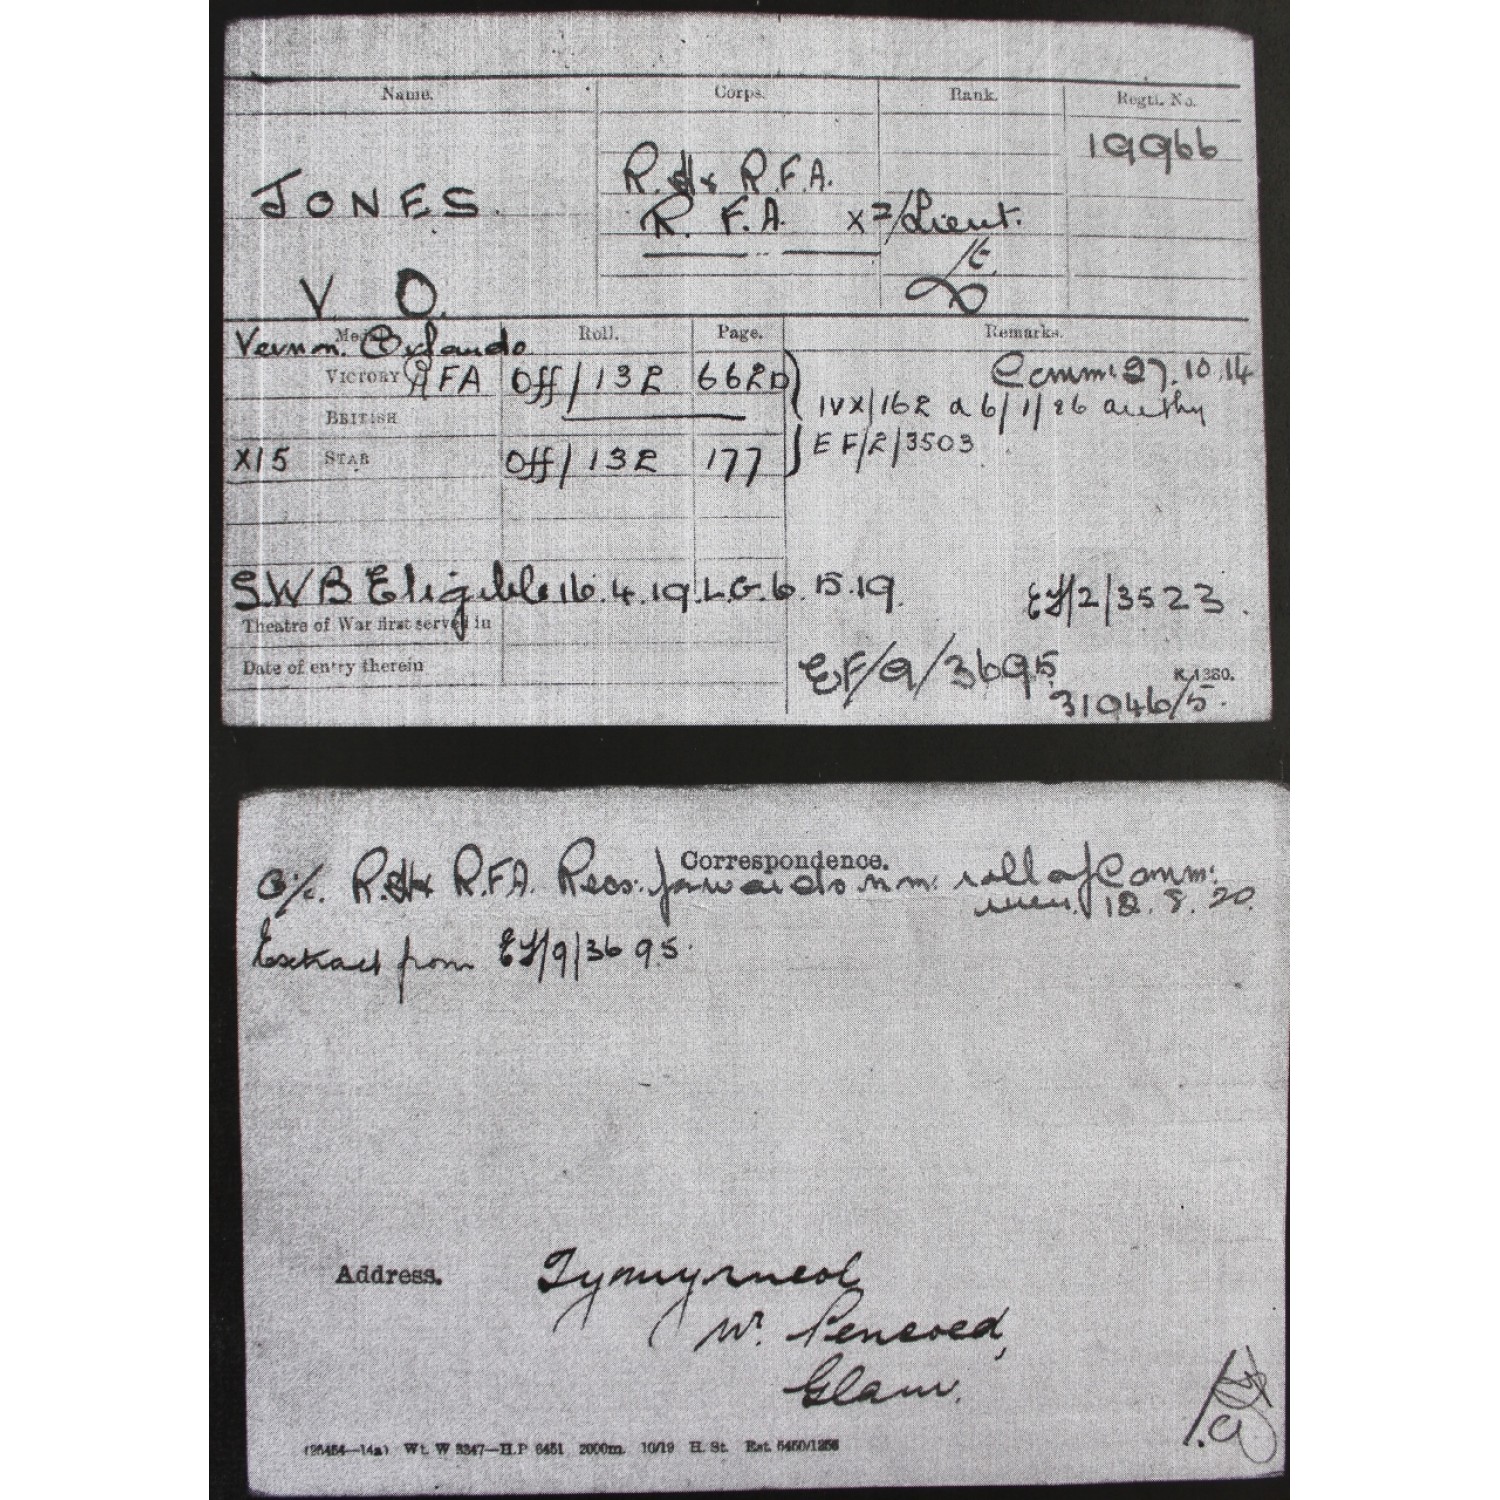 Name. Corps. Rank. Regtl. No.
19966
R.H & R.F.A.
JONES. R. F.A. x 2/Lieut.
Lt.
V O.
Vernon. Orlando
Medal. Roll. Page. Remarks.
VICTORY RFA Off/132 662D Comm: 27.10.14
BRITISH IVX/162 d 6/1/26 authy
X15 STAR Off/132 177 EF/2/3503.
SWB Eligible 16.4.19. L.G. 6.5.19. EF/2/3523.
Theatre of War first served in
Date of entry therein EF/9/3695
K.1380.
31046/5.
Correspondence.
O/c. R.H & R.F.A. Recs: forwards nom: roll of Comm:
men. 12.8.20.
Extract from EF/9/3695.
Address.
Nr. Pencoed,
Glam.
(26454—14a) Wt. W 3347—H.P 6451 2000m. 10/19 H. St. Est. 6460/1256